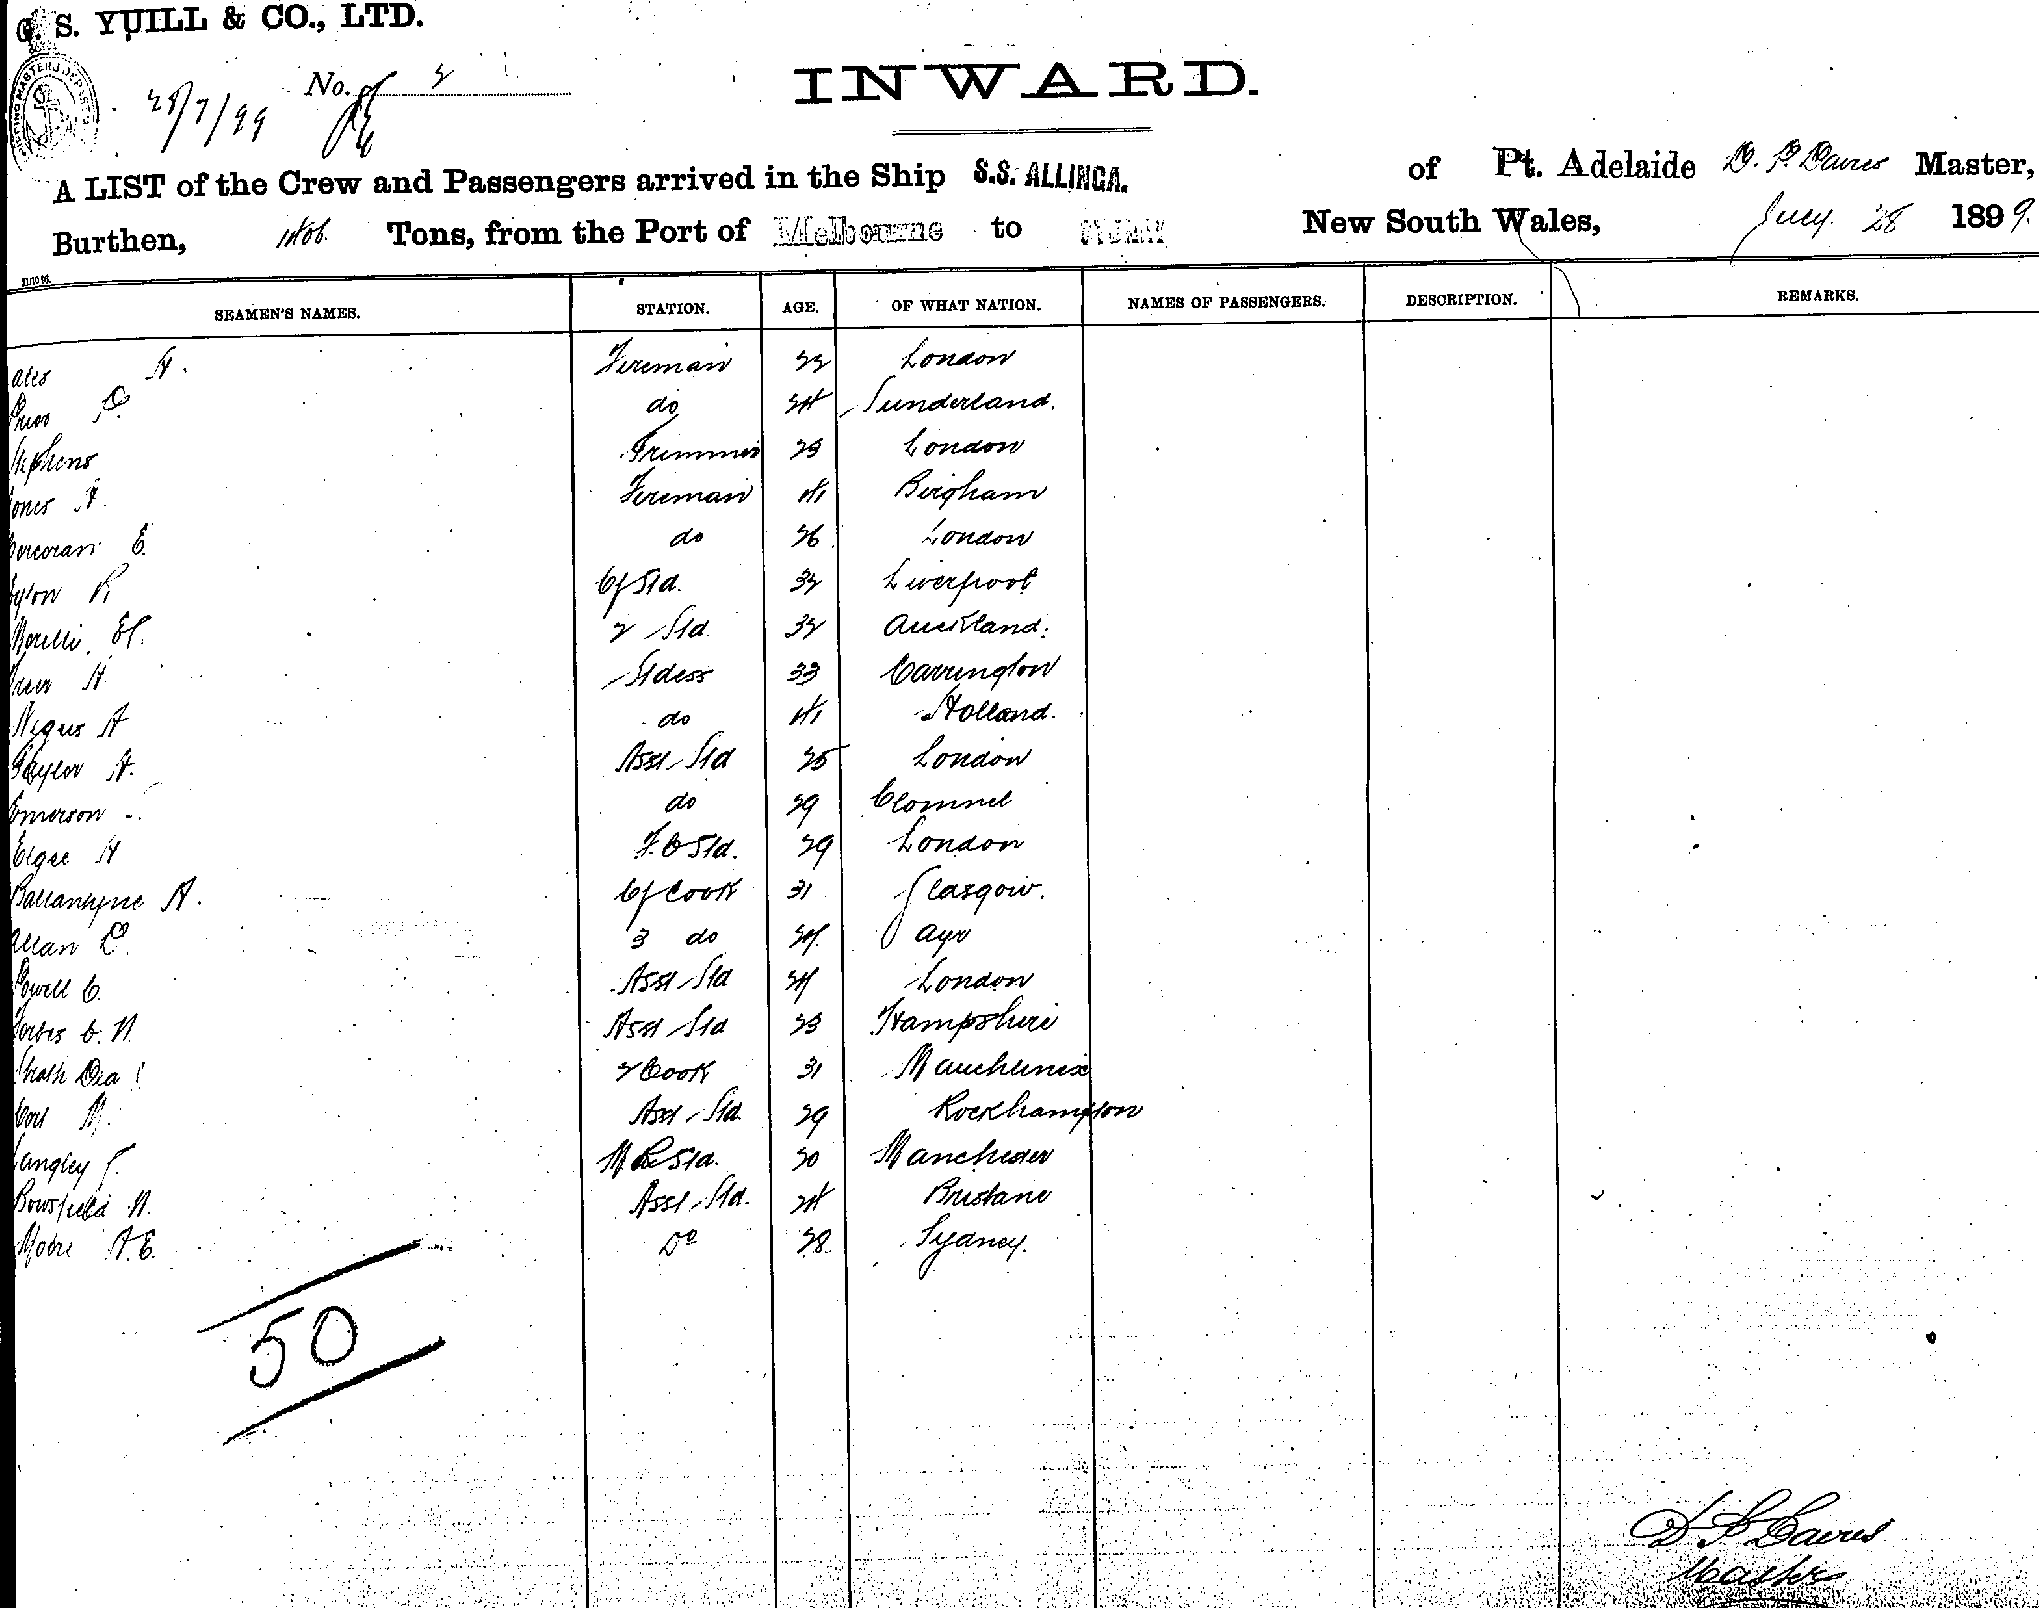 G. S. YUILL & CO., LTD.
28/7/99 No. 2
INWARD.
A LIST of the Crew and Passengers arrived in the Ship S.S. ALLINGA. of Pt. Adelaide D. P. Davies Master,
Burthen, Tons, from the Port of Melbourne to SYDNEY New South Wales, July 28 1899.
SEAMEN'S NAMES. STATION. AGE. OF WHAT NATION. NAMES OF PASSENGERS. DESCRIPTION. REMARKS.
H. Fireman London
do 24 Sunderland.
Stephens Trimmer 23 London
Jones H. Fireman 41 Birgham
Corcoran E. do 26 London
R. Cf Std. 32 Liverpool
2 Std 32 Auckland.
H Stdess 33 Carrington
Negus A do 41 Holland.
Taylor H. Asst Std 25 London
Emerson do 29 Clonmel
Elgee H F.C Std. 29 London
Ballantyne A. Cf Cook 31 Glasgow.
Allan D. 3 do Ayr
Powell C. Asst Std London
Forbes C. W. Asst Std 23 Hampshire
2 Cook 31 Mauchline
Asst Std 29 Rockhampton
Langley J. Std. 30 Manchester
Bowsfield W. Asst Std. 24 Brisbane
Moore A. E. Do 28 Sydney.
50
D. P. Davies
Master